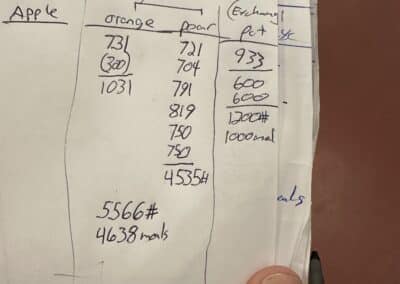 Apple
orange
731
(300)
1031
pear
721
704
791
819
750
750
4535#
(Exchang
pot
933
600
600
1200#
1000meal
5566#
4638 meals
eals